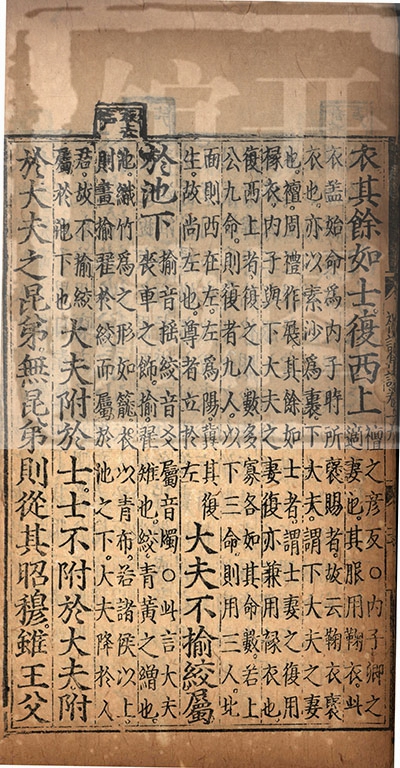 衣其餘如士復西上
襢之彥反○內子卿之
適妻也其服用鞠衣此
衣蓋始命爲內子時所襃賜者故云鞠衣襃
衣也亦以素沙爲裏下大夫謂下大夫之妻
也襢周禮作展其餘如士者謂士妻之復用
褖衣內子與下大夫之妻復亦兼用褖衣也
復西上者復之人數多寡各如其命數若上
公九命則復者九人以下三命則用三人北
面則西在左左爲陽冀其復
生故尚左也尊者立於左
大夫不揄絞屬
於池下
揄音搖絞音爻屬音燭○此言大夫
喪車之飾揄翟雉也絞青黃之繒也
池織竹爲之形如籠衣以青布若諸侯以上
則畫揄翟於絞而屬於池之下大夫降於人
君故不揄絞
屬於池下也
大夫附於士士不附於大夫附
於大夫之昆弟無昆弟則從其昭穆雖王父